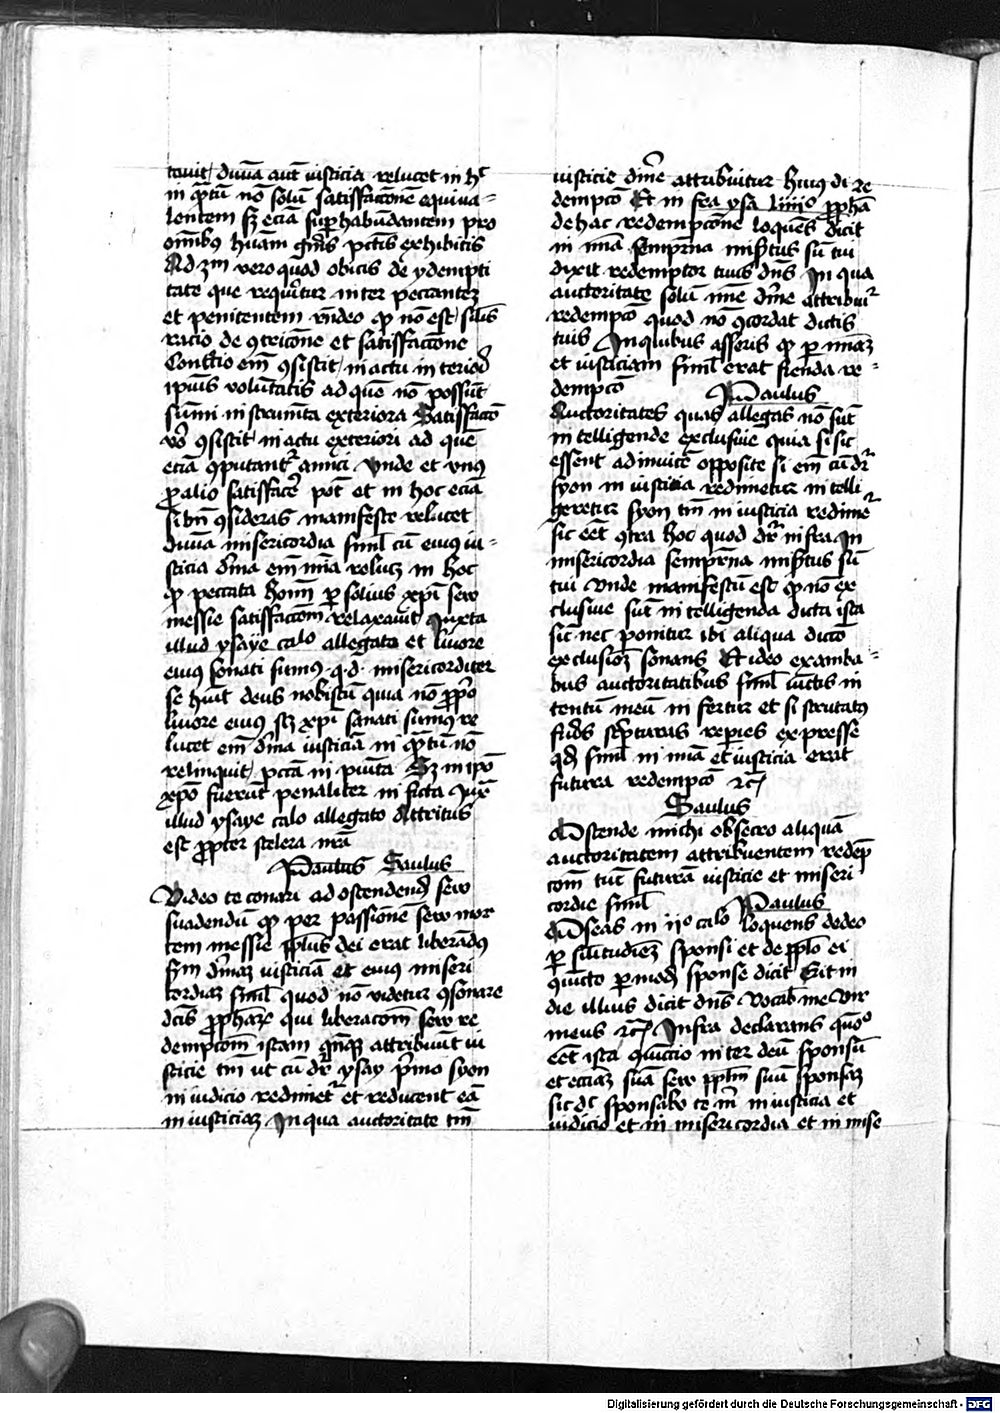 tauit diuīa aut̄ iusticia relucet in hͨ
in qͣtū nō solū satisfacc̄onē equiua-
lentem sȝ eciā suꝑhabūdantem pro
om̄ibꝰ huāni gn̄is pctīs exhibitis
Ad 3m vero quod obicis de ydempti
tate que requiritur inter peccantez
et penitentem rn̄deo ꝙ nō est silis
racio de ꝯtricōne et satisfaccōne
Contricio em̄ ꝯsistit in actu interiori
ipīus voluntatis ad quē nō possūt
sūmi instrumēta exteriora Satisfaccō
vͦ ꝯsistit in actu exteriori ad quē
eciā ꝯputantr̄ amici Unde et vnꝰ
ꝓ alio satisfacē pōt et in hoc eciā
si bn̄ ꝯsideras manifeste relucet
diuīa misericordia siml̄ cū eiuꝰ iu-
sticia diīna em̄ mīa relucꝫ in hoc
ꝙ peccata hōim ꝑ soliꝰ xp̄i seu
messie satisfaccōem relaxauit Iuxta
illud ysaye calo allegato et liuore
eiuꝰ sanati sumꝰ q.d. misericorditer
se huit deus nobiscū quia nō ꝓpͦo
liuore eiuꝰ scꝫ xp̄i sanati sumꝰ re
lucet em̄ diīna iusticia in qͣtū nō
relinquit pctā impunita Sȝ in ipō
xp̄o fuerūt penaliter inficta Iuxͣ
illud ysaye calo allegato Attritus
est ꝓpter scelera nrā
Paulus Saulus
Video te conari ad ostendendū seu
suadendū ꝙ per passionē seu mor
tem messie pp̄lus dei erat liberādꝰ
scd̄m diīnaȝ iusticiā et eiuꝰ miseri
cordiaȝ siml̄ quod nō videtur ꝯsonare
dcīs ꝓphāꝝ qui liberacōem seu re
dempcōem istam qn̄qꝫ attribuūt iu
sticie tm̄ ut cū dr̄ ysay pͥmo syon
in iudicio redimet̄ et reducent eā
in iusticiaȝ In qua auctoritate tm̄
iusticie diīne attribuitur huiꝰmōi re
dempcō Et in fra ysa liiiiͦ ꝓphā
de hac redempcōne loquens dicit
in mīa sempit̄na misertus sū tui
dixit redemptor tuus dn̄s In qua
auctoritate solū mīe diīne attribuit̄
redempcō quod nō ꝯcordat dictis
tuis In quibus asseris ꝙ ꝑ mīaȝ
et iusticiam siml̄ erat fienda re-
dempcō Paulus
Auctoritates quas allegas nō sūt
intelligende exclusiue quia si sic
essent adinuicē opposite si em̄ cū dr̄
syon in iusticia redimetur intelli
geretur syon tm̄ in iusticia redimet̄
sic eēt ꝯtra hoc quod dr̄ infra In
misericordia sempit̄na misertus sū
tui Unde manifestū est ꝙ nō ex
clusiue sūt intelligenda dicta ista
sic nec ponitur ibi aliqua dictō
exclusionē sonans Et ideo ex amba-
bus auctoritatibus siml̄ iūctis in
tentū meū infertur et si scrutatꝰ
fueris scͥpturas reperies expresse
qd̄ siml̄ in mīa et iusticia erat
futura redempcō ꝛcͣ
Saulus
Ostende michi obsecro aliquā
auctoritatem attribuentem redēp
cōem tuc̄ futurā iusticie et miseri
cordie siml̄ Paulus
Oseas in iiͦ calo loquens de deo
ꝑ silitudinē sponsi et de pp̄lo ei
ꝯiūcto ꝑ modū sponse dicit Erit in
die illius dicit dn̄s vocabit me vir
meus ꝛcͣ Infra declarans quōͦ
eēt ista ꝯiūctio inter deū sponsū
et eccīaȝ suā seu pp̄lm suū sponsaȝ
sic dc̄ sponsabo te m̄ in iusticia et
iudicio et in misericordia et in mise
Digitalisierung gefördert durch die Deutsche Forschungsgemeinschaft - DFG